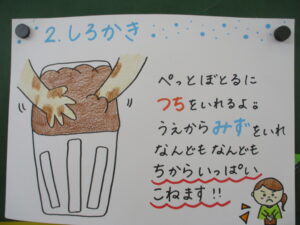 2.しろかき
ぺっとぼとるに
つちをいれるよ。
うえからみずをいれ
なんどもなんども
ちからいっぱい
こねます!!